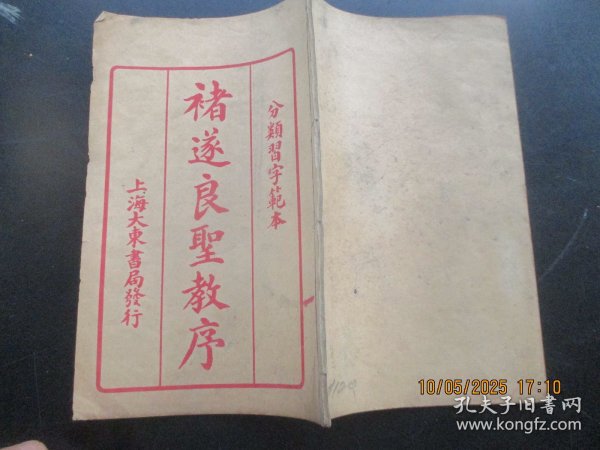 分類習字範本
褚遂良聖教序
上海大東書局發行
10/05/2025 17:10
孔夫子旧书网
www.kongfz.com